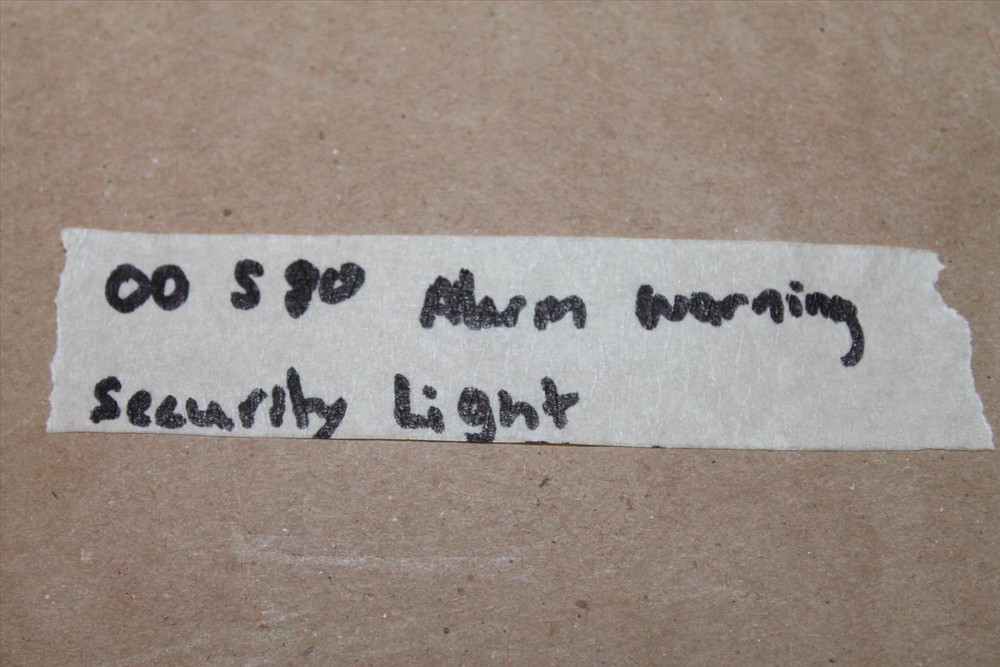 00 S 80 Alarm warning
Security Light